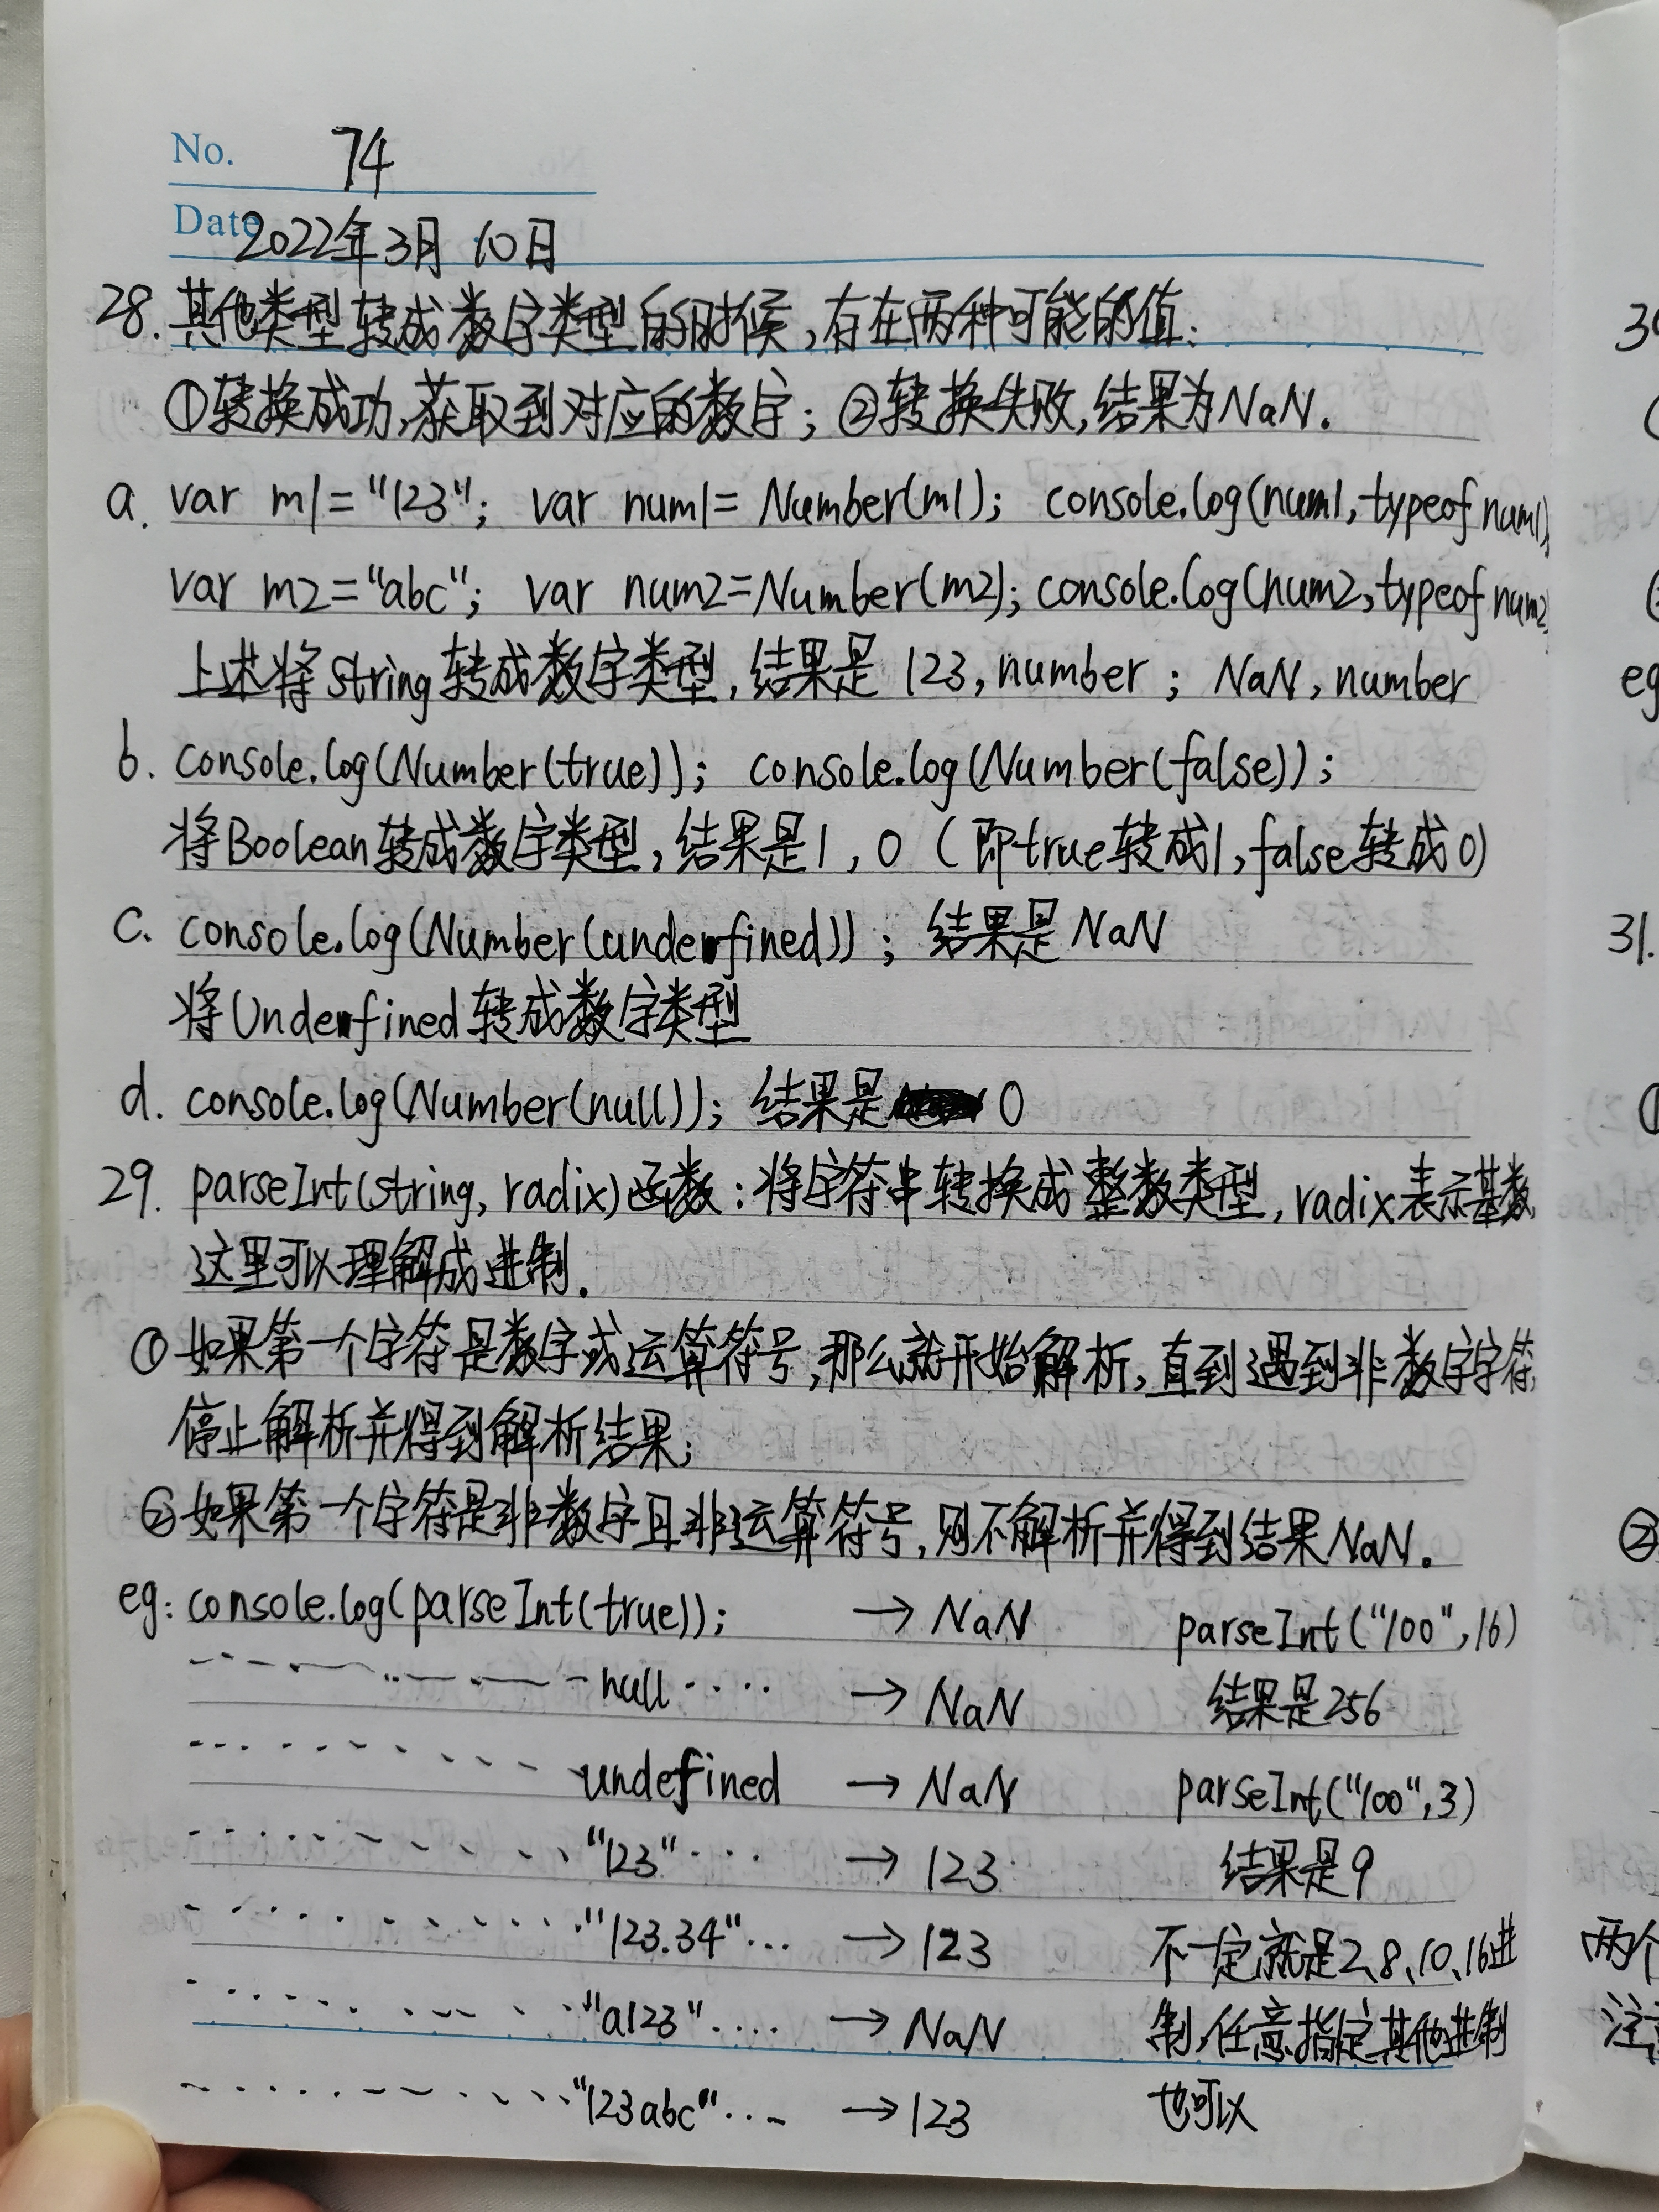 No. 74
Date 2022年3月10日
28. 其他类型转成数字类型的时候,存在两种可能的值:
①转换成功,获取到对应的数字; ②转换失败,结果为NaN.
a. var m1="123"; var num1= Number(m1); console.log(num1, typeof num1);
var m2="abc"; var num2=Number(m2); console.log(num2, typeof num2
上述将String转成数字类型,结果是 123, number ; NaN, number
b. console.log(Number(true)); console.log(Number(false));
将Boolean转成数字类型,结果是1, 0 (即true转成1, false转成0)
c. console.log(Number(undefined)); 结果是NaN
将Undefined转成数字类型
d. console.log(Number(null)); 结果是 0
29. parseInt(string, radix)函数:将字符串转换成整数类型, radix表示基数
这里可以理解成进制.
①如果第一个字符是数字或运算符号,那么就开始解析,直到遇到非数字字符,
停止解析并得到解析结果;
②如果第一个字符是非数字且非运算符号,则不解析并得到结果NaN.
eg: console.log(parseInt(true)); → NaN
null ···· → NaN
undefined → NaN
"123" ··· → 123
"123.34" ... → 123
"a123" .... → NaN
"123abc" ... → 123
parseInt("100", 16)
结果是256
parseInt("100", 3)
结果是9
不一定就是2、8、10、16进
制,任意指定其他进制
也可以
31.
②
eg
两个